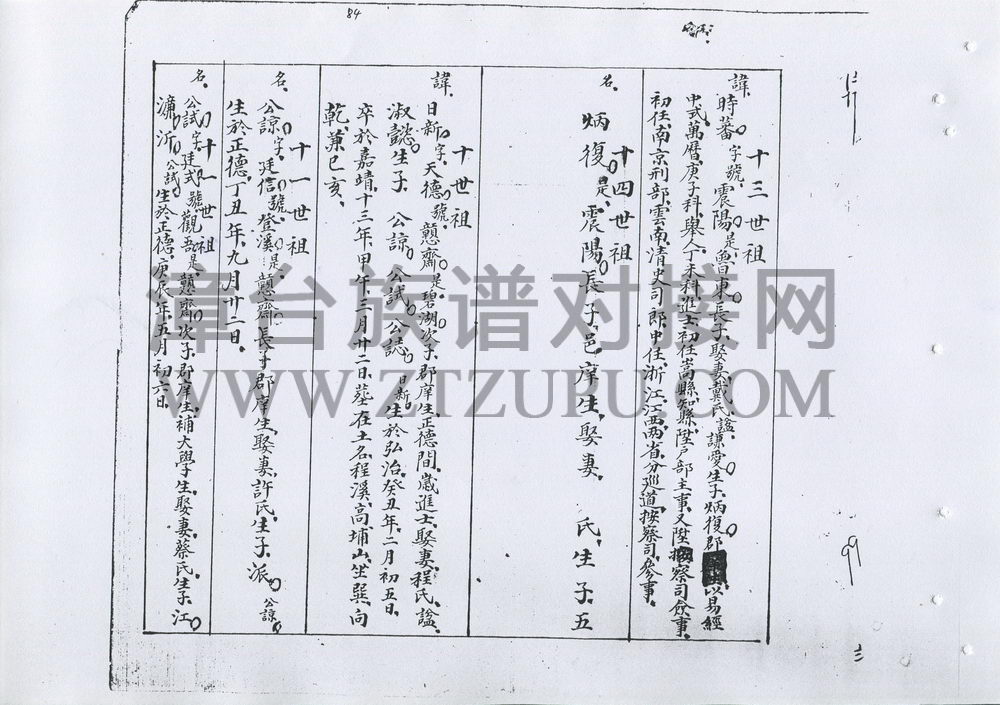 84
十三世祖
諱 時蕃字號震陽是魯東長子娶妻戴氏謚謙愛生子炳復郡以易經
中式萬曆庚子科舉人丁未科進士初任嵩縣知縣陞戶部主事又陞按察司僉事
初任南京刑部雲南清史司郎中任浙江江西兩省分巡道按察司參事
十四世祖
名 炳復是震陽長子邑庠生娶妻 氏生子五
十世祖
諱 日新字天德號懸齋是碧湖次子郡庠生正德間歲進士娶妻程氏謚
淑懿生子 公諒公試公誌日新生於弘治癸丑年二月初五日
卒於嘉靖十三年甲午三月廿二日墓在土名程溪高埔山坐巽向
乾兼巳亥
十一世祖
名 公諒字廷信號登溪是懸齋長子郡庠生娶妻許氏生子派公諒
生於正德丁丑年九月廿二日
十一世祖
名 公試字廷式號觀吾是懸齋次子郡庠生補大學生娶妻蔡氏生子江
濂沂公試生於正德庚辰年五月初六日
99
漳台族谱对接网
WWW.ZTZUPU.COM